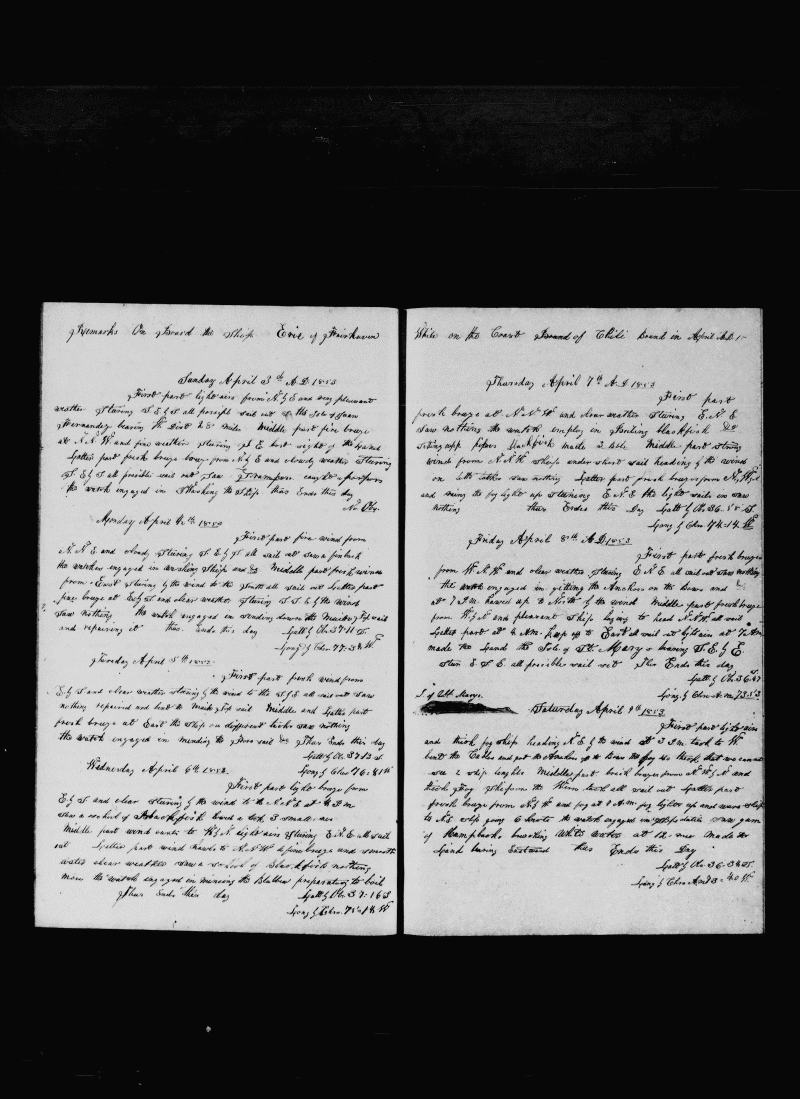 Remarks On Board the Ship Erie of Fairhaven
Sunday April 3th A.D 1853
First part light airs from N. & E and very pleasant
weather Stearing S. E & S all possible sail out the Isle of Juan
Hernandez bearing W. Dist miles Middle part fine breeze
at N. N W. and fine weather stearing S E lost sight of the Land
Latter part fresh breeze from N & E and cloudy weather Stearing
S. E & S all possible sail out Saw caught a porpoes
the watch engaged in the Ship thus Ends this day
No Obs.
Monday April 4th
First part fine wind from
N. N E and cloudy Stearing S. E & S all sail out saw a finback
the watches engaged in working Ship and &c Middle part fresh winds
from East stearing by the wind to the South all sail out Latter part
fine breeze at E & S and clear weather Stearing S S E by the Wind
Saw nothing the watch engaged in sending down the Main Top sail
and repairing it thus Ends this day Latt by Ob. 37-11 S.
Long by Chro. 77-34 W
Tuesday April 5th
First part fresh wind from
E by S and clear weather stearing by the wind to the all sail out Saw
nothing repaired and bent the Main Top sail Middle and Latter part
fresh breeze at East the Ship on different tacks saw nothing
the watch engaged in mending the sail &c Thus Ends this day
Latt by Ob 37-13 S.
Long by Chro 76-41 W
Wednesday April 6th 1853
First part light breeze from
E by S and clear stearing by the wind to the N. N E at 4 P m
saw a school of blackfish 3 small ones
Middle part wind cants to W by N light airs stearing E. N. E all sail
out Latter part wind hawls to N. N W a fine breeze and smooth
water clear weather saw a school of Blackfish nothing
more the watch engaged in mincing the Blubber preparing to boil
Thus Ends this day Latt by Ob. 37-16 S
Long by Chro. 75-14 W
While on the Coast Bound of Chili Bound in April A.D 1
Thursday April 7th A.D 1853
First part
fresh breeze at N. N. W and clear weather Stearing E. N E
saw nothing the watch employ in Boiling blackfish &c
blackfish made 2 bbls Middle part strong
winds from N. N. W ships under short sail heading by the wind
on both tacks saw nothing Latter part fresh breeze from N. W &
and the fog light up stearing E. N E the light sails in saw
nothing thus Ends this Day Latt by Ob 36-58 S.
Long by Chro. 74-14 W
Friday April 8th A.D 1853
First part fresh breeze
from W. N. W and clear weather Stearing E. N. E all sail out saw nothing
the watch engaged in gitting the Anchors on the Bows and &c
at 7 P.m. hawled up to North by the wind Middle part fresh breeze
from W. by N and pleasant Ship laying to head N. N W all sail
Latter part at 4 A.m. keep up to East all sail out light air at 7 A.m
made the Land the Isle of St. Mary's bearing S. E by E
Stear E S E all possible sail out Thus Ends this day
Latt by Ob 36.47
Long by Chro A.m. 73.53
I. of St Marys.
Saturday April 9th 1853
First part light airs
and thick fog ship heading N. E by the wind at 3 P.m tack to W.
bent the Cables and put the Anchor on the Bow the fog so thick that we cannot
see 2 ship lenghts Middle part brisk breeze from N. W by N and
thick fog Ship from the all sail out Latter part
fresh breeze from N by W and fog at 8 A.m fog lighter up and ware ship
to N E ship going 6 knots the watch engaged in saw gam
of Humpbacks breaching White Water at 12. noon made the
Land bearing Eastward thus Ends this Day
Latt by Ob 36-34 S.
Long by Chro A.m 73-40 W